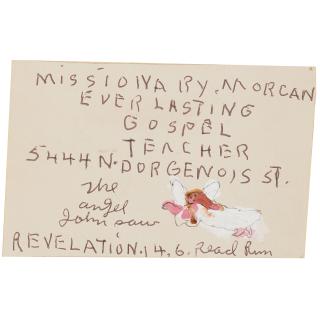 MISSIONARY. MORGAN
EVERLASTING
GOSPEL
TEACHER
5444 N. DORGENOIS ST.
the
angel
John saw
REVELATION. 14, 6. Read Rum